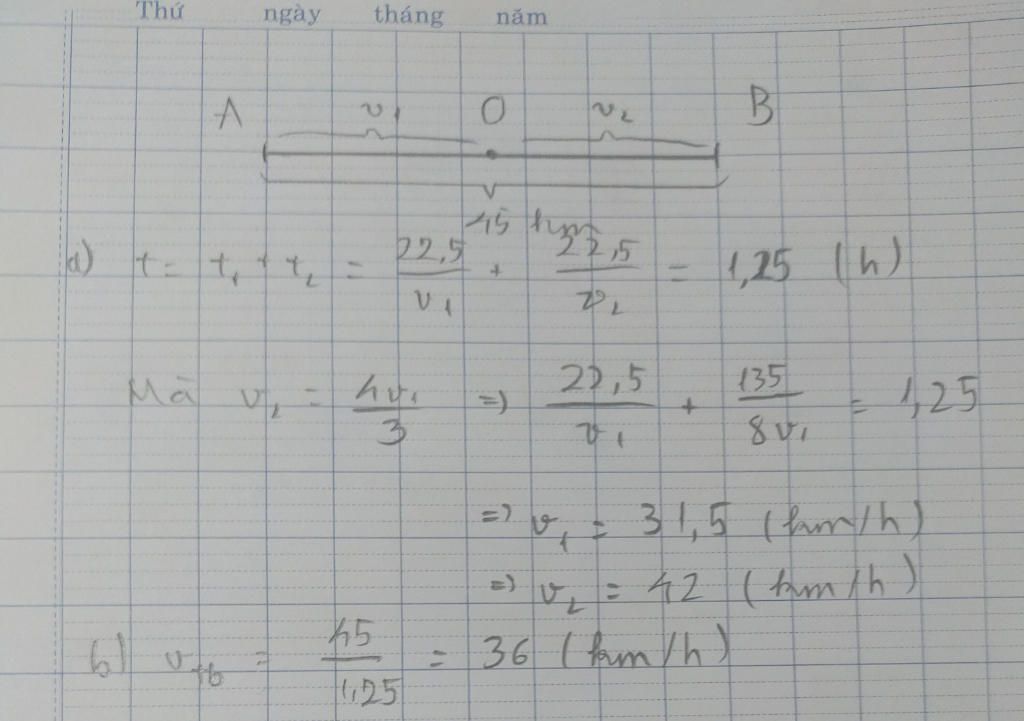 Thứ ngày tháng năm
A v₁ O v₂ B
45 km
a) t = t₁ + t₂ = 22,5/v₁ + 22,5/v₂ = 1,25 (h)
Mà v₂ = 4v₁/3 => 22,5/v₁ + 135/8v₁ = 1,25
=> v₁ = 31,5 (km/h)
=> v₂ = 42 (km/h)
b) vtb = 45/1,25 = 36 (km/h)